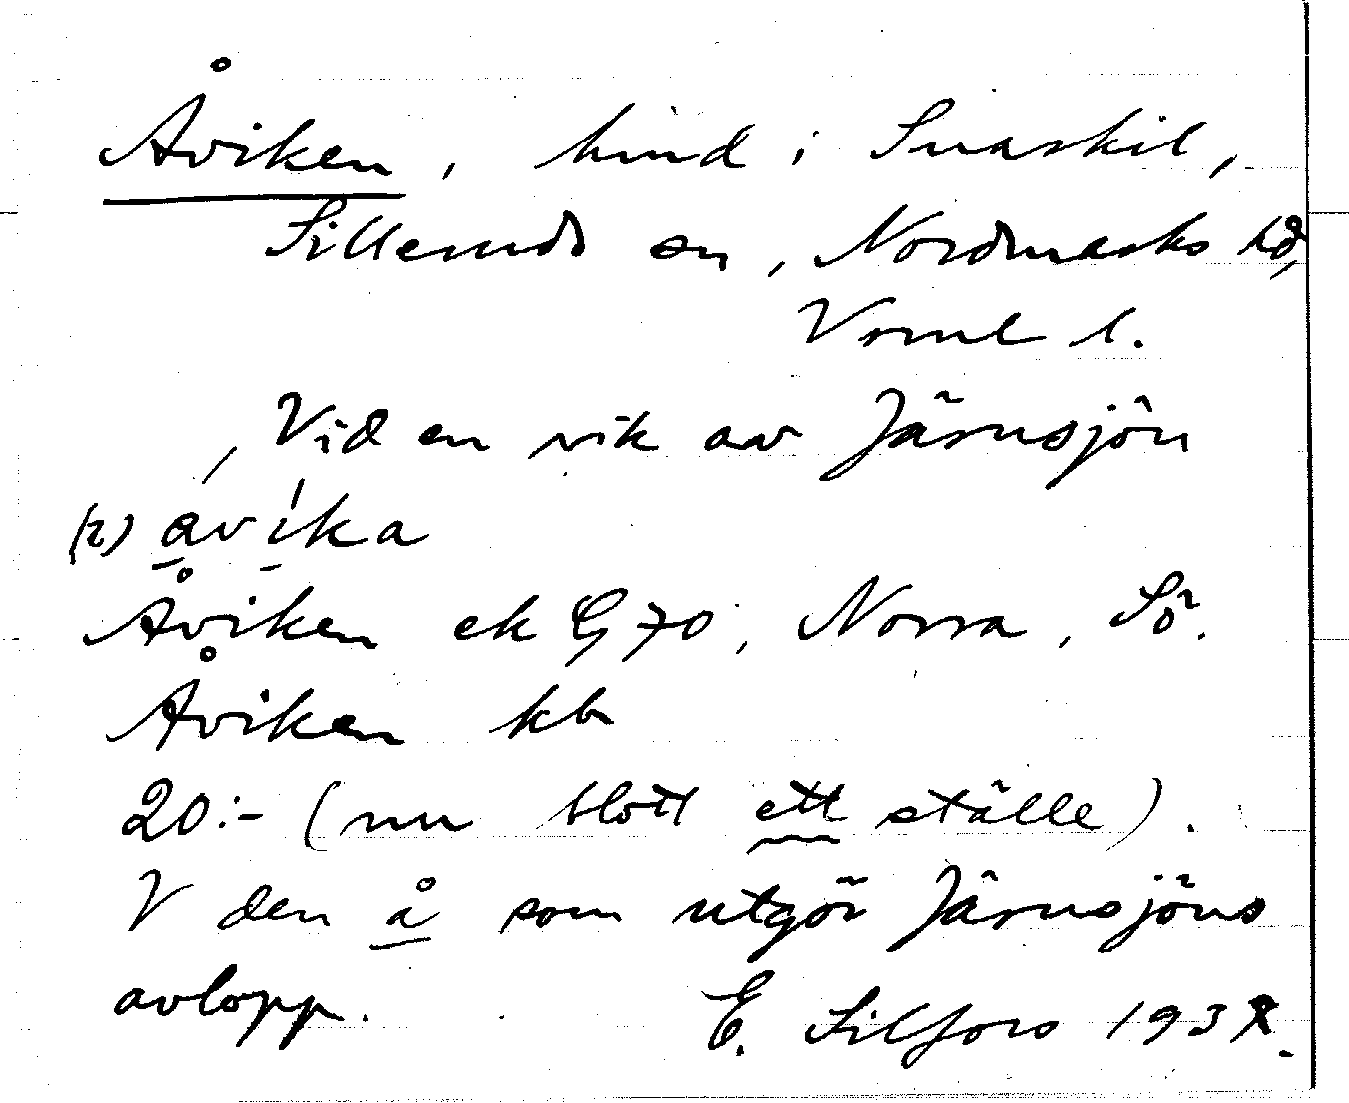 Åviken, hmd i Snarkil,
Silleruds sn, Nordmarks hd,
Vrml l.
, Vid en vik av Järnsjön
(2) avíka
Åviken ek G 70, Norra, Sö.
Åviken kb
20:- (nu blott ett ställe).
V den å som utgör Järnsjöns
avlopp. E. Lilfors 193